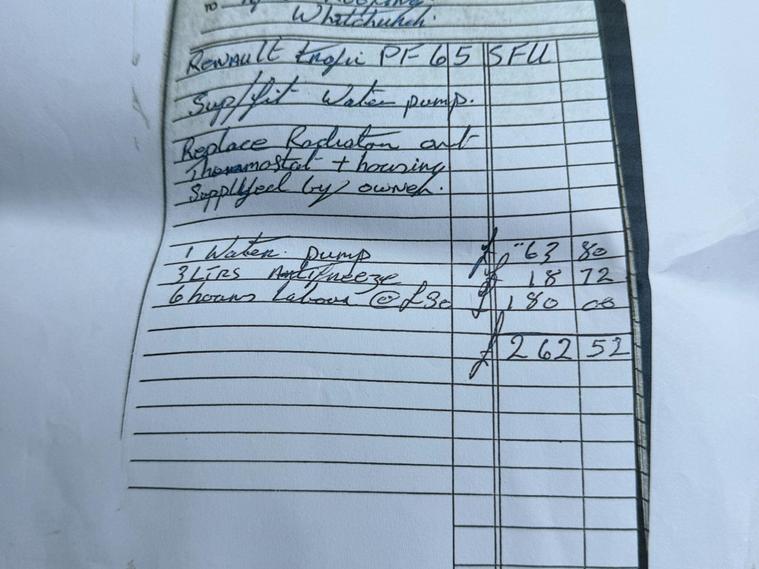 TO
Whitchurch.
RENAULT Trafic PF65 SFU
Sup/fit Water pump.
Replace Radiator and
Thermostat + housing
Supplied by owner.
1 Water pump £ 63 80
3 LTRS Antifreeze £ 18 72
6 hours labour @ £30 £ 180 00
£ 262 52